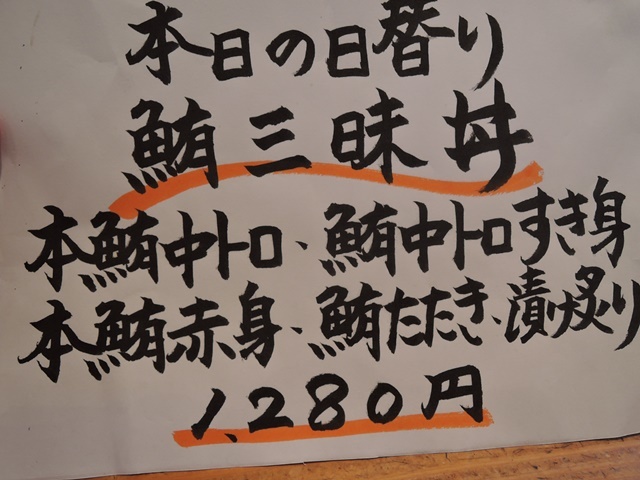 本日の日替り
鮪三昧丼
本鮪中トロ、鮪中トロすき身
本鮪赤身、鮪たたき、漬け炙り
1,280円